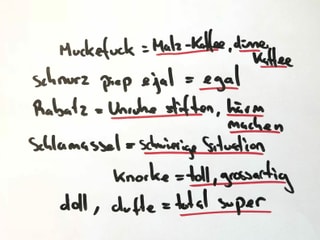 Muckefuck = Malz-Kaffee, dünner
Kaffee
schnurz piep ejal = egal
Rabatz = Unruhe stiften, Lärm
machen
Schlamassel = schwierige Situation
knorke = toll, grossartig
doll, dufte = total super